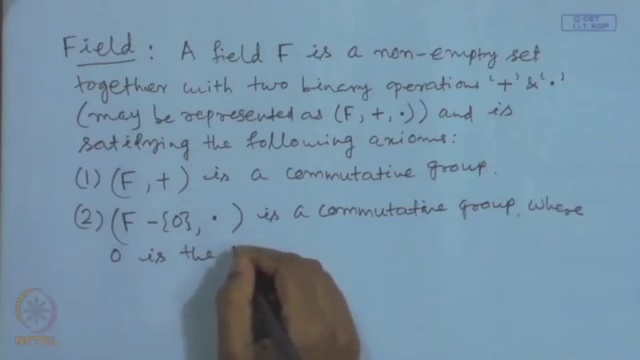 Field : A field F is a non-empty set
together with two binary operations '+' & '.'
(may be represented as (F, +, .)) and is
satisfying the following axioms:
(1) (F, +) is a commutative group.
(2) (F - {0}, .) is a commutative group, where
0 is the
NPTEL